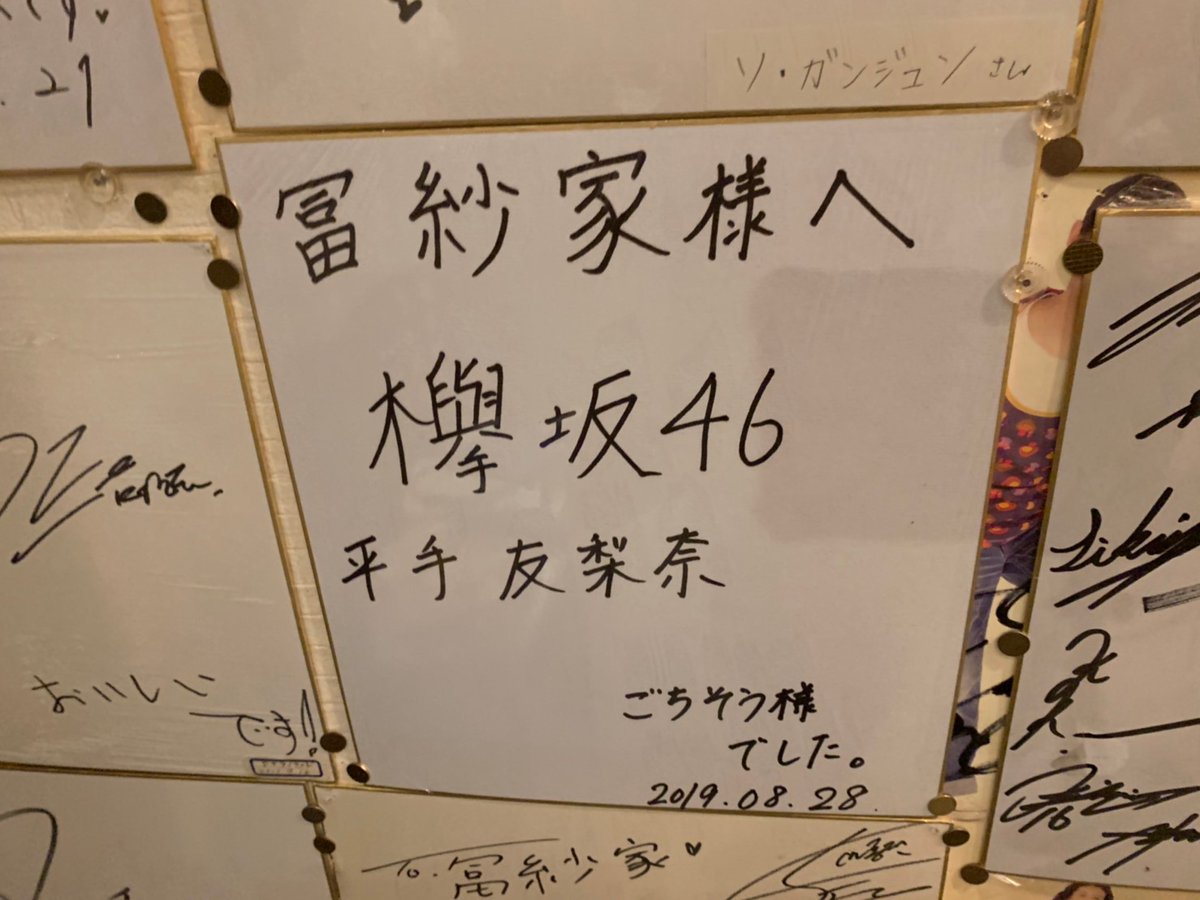 . 21
ソ・ガンジュン さん
冨紗家様へ
欅坂46
平手 友梨奈
ごちそう様
でした。
2019.08.28.
おいしい
です!!
To. 冨紗家